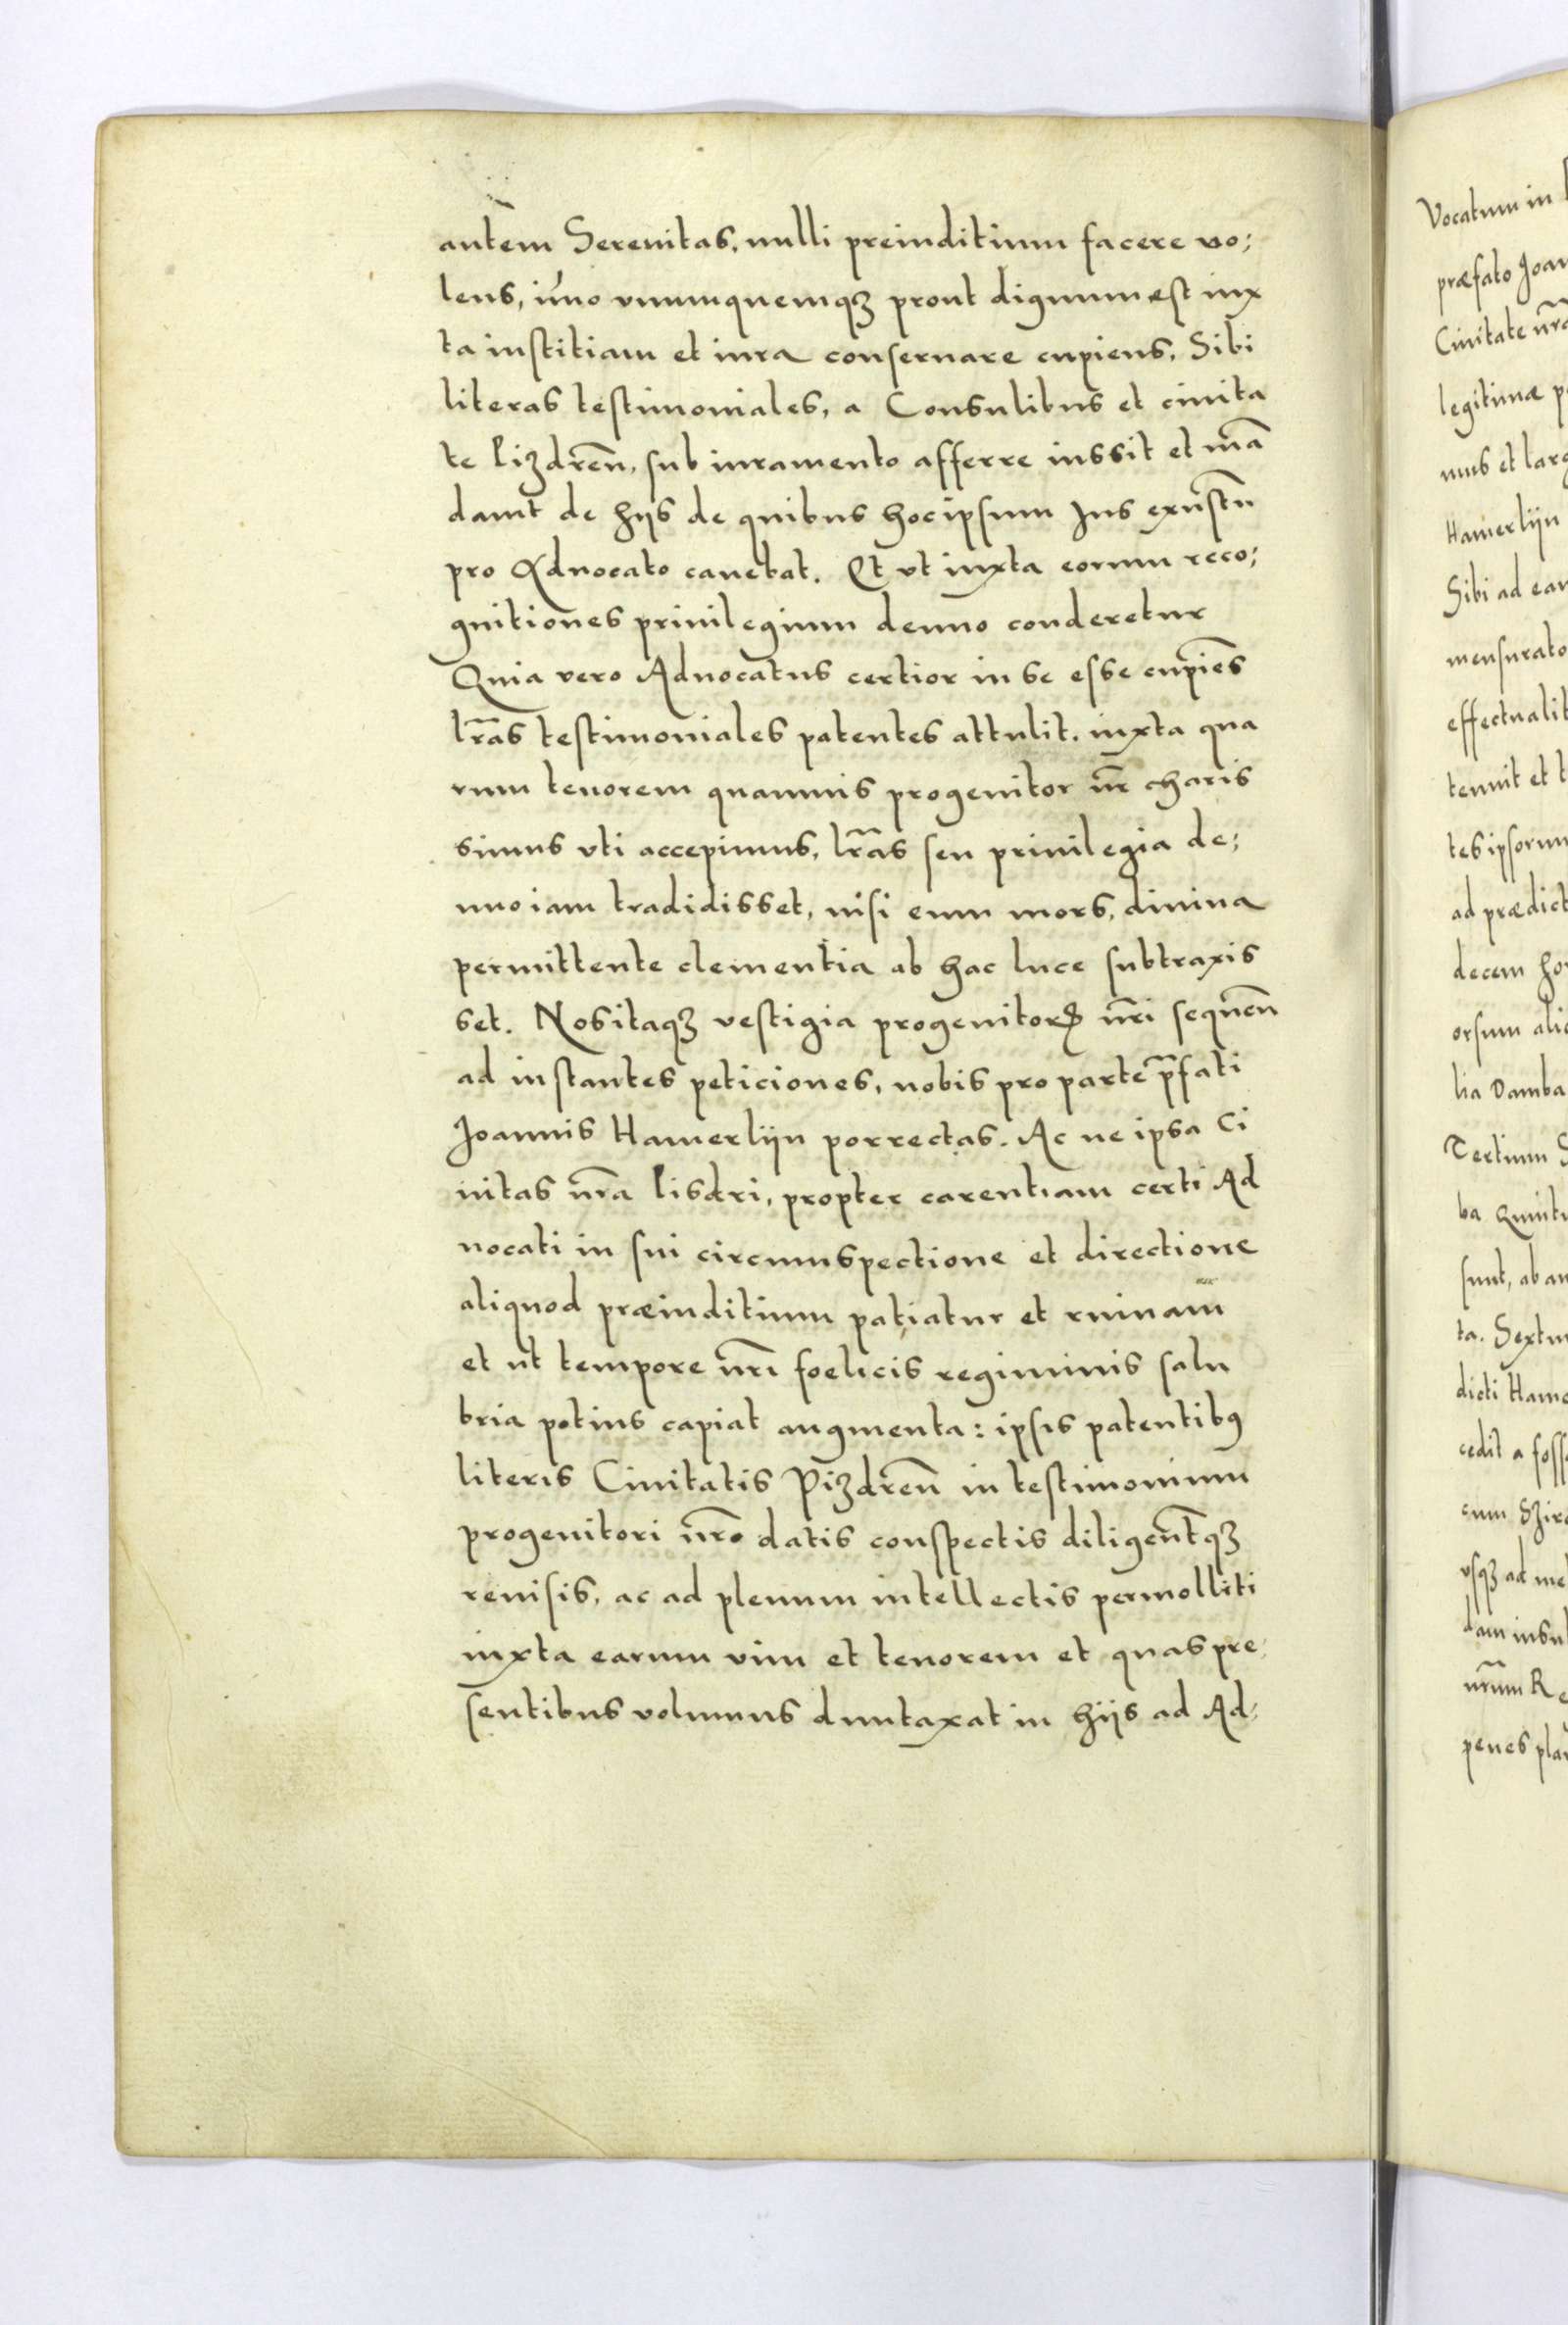 autem Serenitas, nulli preiuditium facere vo;
lens, im̄o vnumquemqꝫ prout dignum est iux
ta iustitiam et iura conseruare cupiens, Sibi
literas testimoniales, a Consulibus et ciuita
te Pizdren̄, sub iuramento afferre iussit et man̄
dauit de hÿs de quibus hoc ipsum Jus exustū
pro Aduocato cauebat. Et vt iuxta eorum reco;
gnitiones priuilegium denuo conderetur
Quia vero Aduocatus certior in se esse cupiēs
lr̄as testimoniales patentes attulit. iuxta qua
rum tenorem quamuis progenitor nr̄ charis
simus vti accepimus, lr̄as seu priuilegia de;
nuo iam tradidisset, nisi eum mors, diuina
permittente clementia ab hac luce subtraxis
set. Nos itaqꝫ vestigia progenitorꝝ nr̄i sequen̄
ad instantes peticiones, nobis pro parte p̄fati
Joannis Hamerlijn porrectas. Ac ne ipsa Ci
uitas nr̄a Pisdri, propter carentiam certi Ad
uocati in sui circumspectione et directione
aliquod præiuditium patiatur et ruinam
et ut tempore nr̄i foelicis regiminis salu
bria potius capiat augmenta: ipsis patentibꝰ
literis Ciuitatis Pizdren̄ in testimonium
progenitori nr̄o datis conspectis diligent̄qꝫ
reuisis, ac ad plenum intellectis permolliti
iuxta earum vim et tenorem et quas pre;
sentibus volumus duntaxat in hijs ad Ad;
Vocatum in
præfato Joan
Ciuitate nr̄a
legitimæ p
mus et larg
Hamerlijn
Sibi ad ean
mensurato
effectualit
tenuit et t
tes ipsorum
ad prædict
decem ho
orsum alio
lia Damba
Tertium S
ba Quintu
sunt, ab an
ta. Sextu
dicti Hame
cedit a foss
cum Szir
vsqꝫ ad me
dam insul
nr̄um Re
penes pla